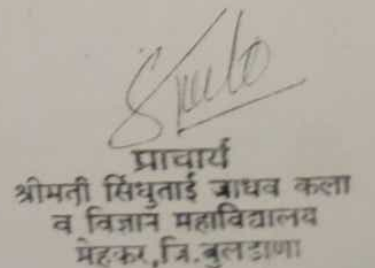 प्राचार्य
श्रीमती सिंधुताई जाधव कला
व विज्ञान महाविद्यालय
मेहकर, जि. बुलडाणा